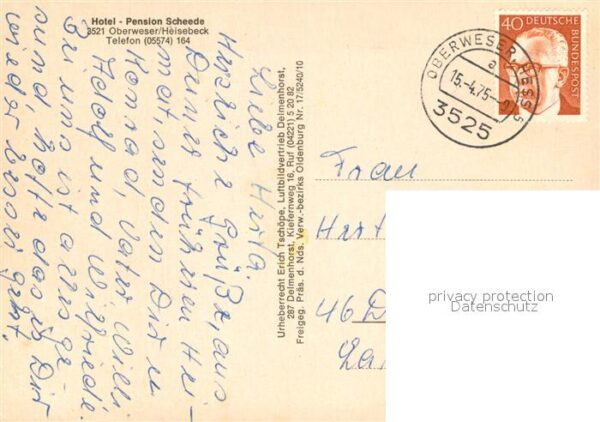 Hotel - Pension Scheede
3521 Oberweser/Heisebeck
Telefon (05574) 164
Liebe Herta,
Herzliche Grüße, aus
Deiner früheren Hei-
mat, senden Dir
Konrad Vater Willi
und Wilfriede.
Bei uns ist alles ge-
sund hoffe das es Dir
wieder besser geht.
Urheberrecht Erich Tschöpe, Luftbildvertrieb Delmenhorst,
287 Delmenhorst, Kiefernweg 16, Ruf (04221) 5 20 82
Freigeg. Präs. d. Nds. Verw.-bezirks Oldenburg Nr. 17/5240/10
40 DEUTSCHE
BUNDESPOST
OBERWESER, HESS
a
15.-4.75
3525
Frau
Hert
46 D
privacy protection
Datenschutz